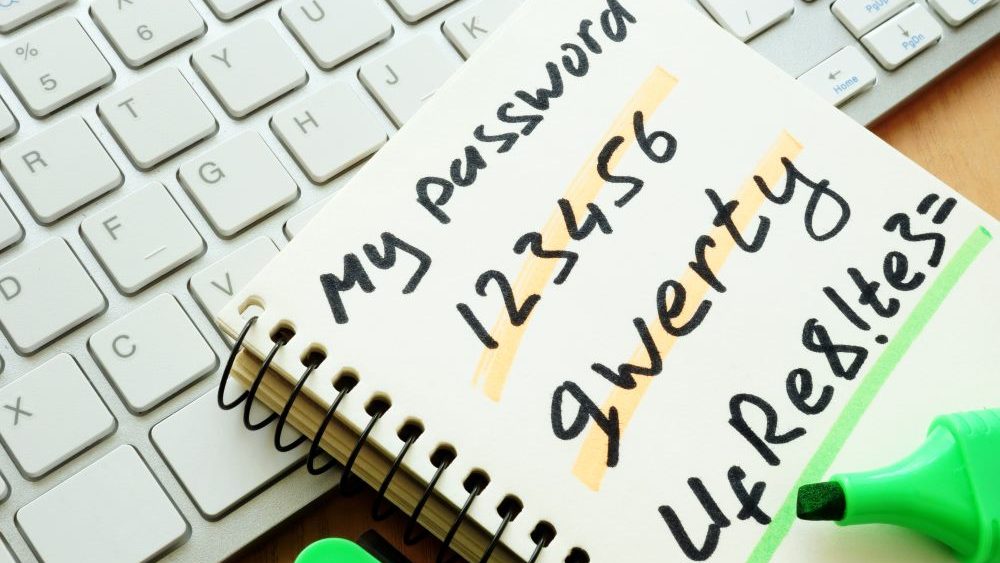 My password
123456
qwerty
UfRe8!te3=
%
5
6
U
Y
T
R
K
J
H
G
F
D
V
C
X
PgUp
PgDn
Home